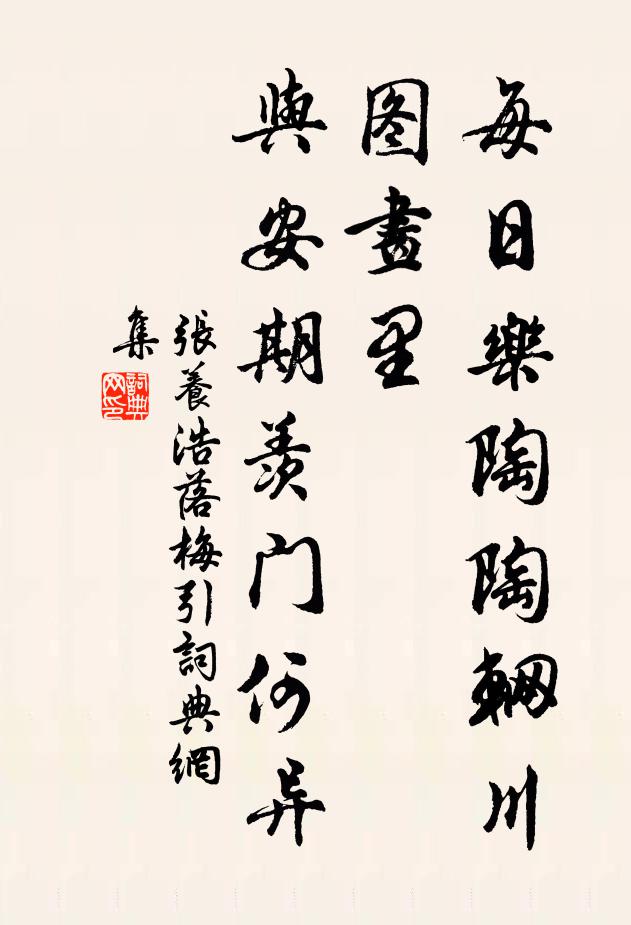 每日樂陶陶輞川
图畫里
與安期羡门何异
張養浩落梅引詞典網
集
詞典
网印